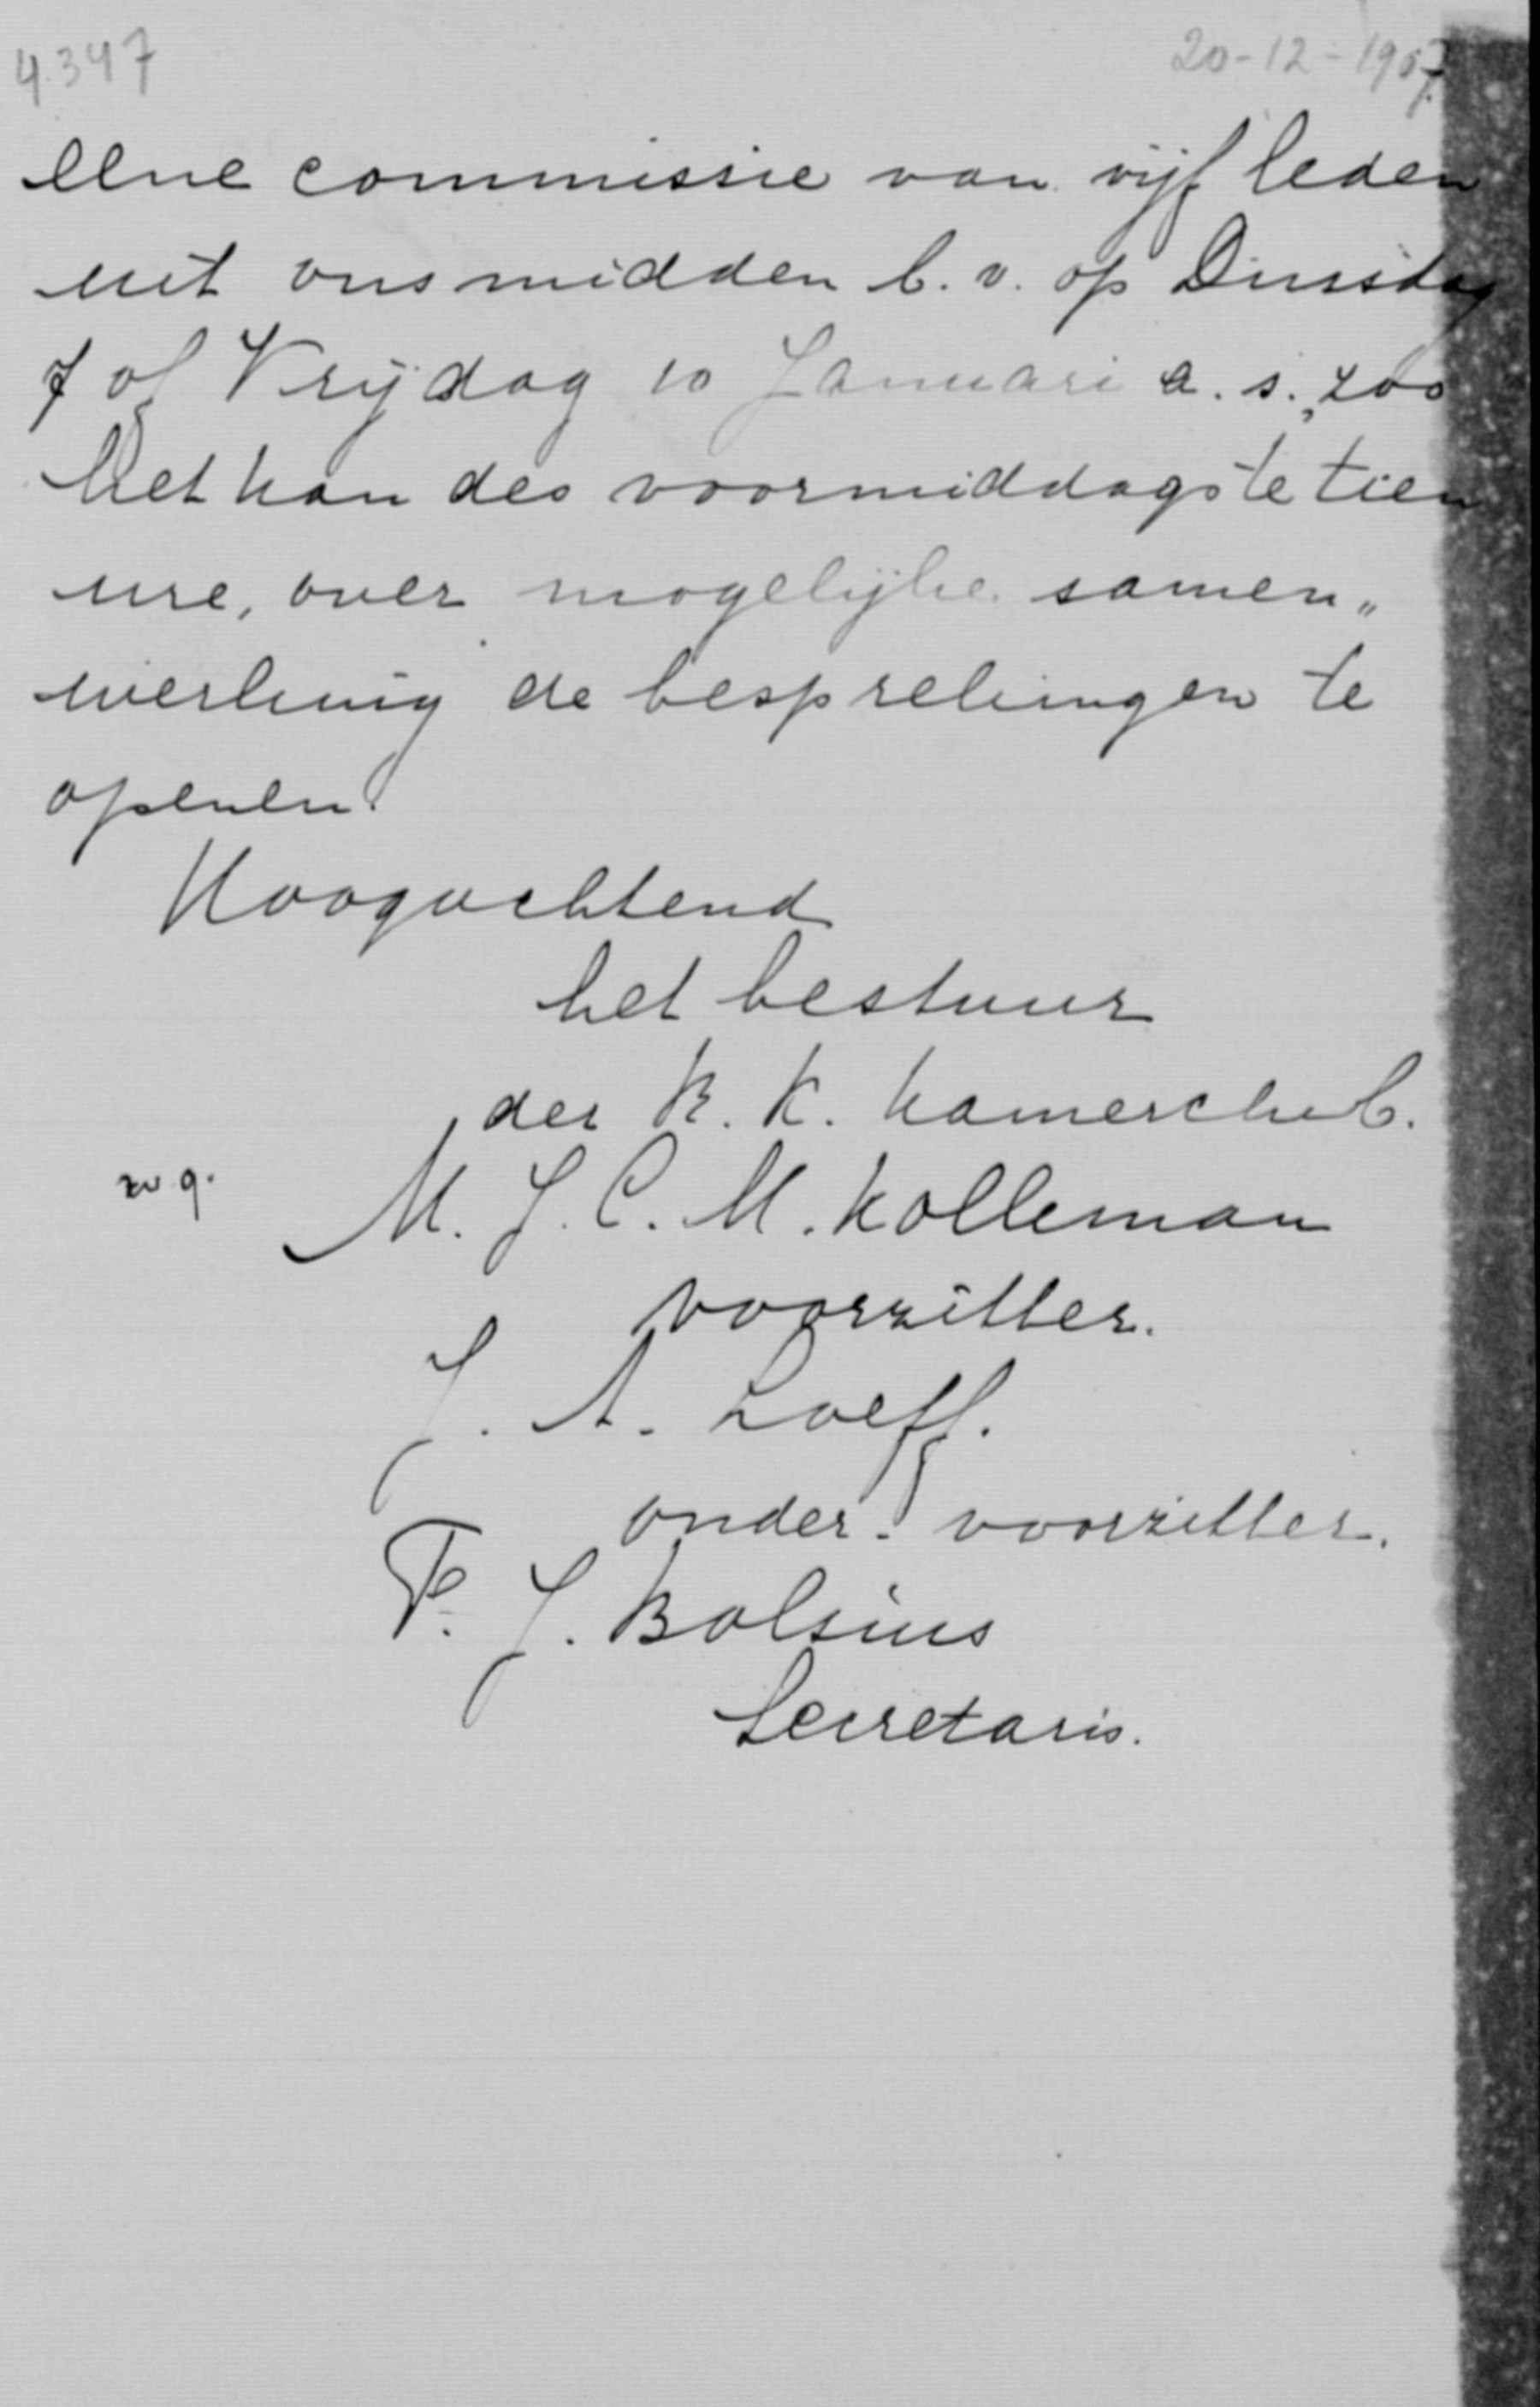 4.347
20-12-1907.
eene commissie van vijf leden
uit ons midden b.v. op Dinsdag
7 of Vrijdag 10 Januari a.s., zoo
het kan des voormiddags te tien
ure, over mogelijke samen„
werking de besprekingen te
openen.
Hoogachtend
het bestuur
der R. K. Kamerclub.
w.g.
M. J. C. M. Kolkman
voorzitter.
J. A. Loeff.
onder-voorzitter.
P. J. Bolsius
Secretaris.